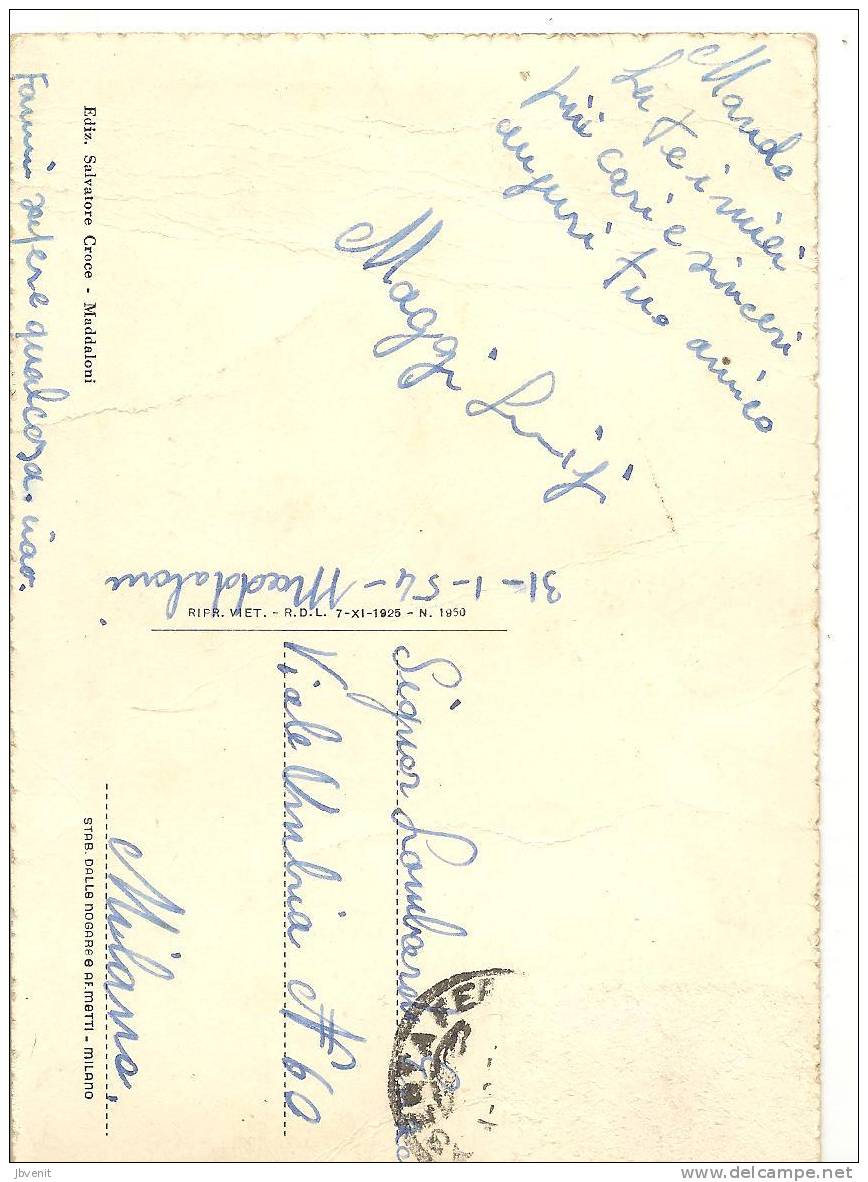 Manda
La te i miei
più cari e sinceri
auguri tuo amico
Maggi Luigi
31-1-54 - Maddaloni
Fammi sapere qualcosa. ciao.
Ediz. Salvatore Croce - Maddaloni
RIPR. VIET. - R.D.L. 7-XI-1925 - N. 1950
Signor Lombardi
Viale Umbria N 60
Milano.
STAB. DALLE NOGARE e ARMETTI - MILANO
jbvenit
www.delcampe.net